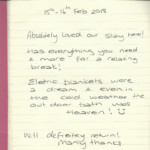 15th - 16th Feb 2018
Absolutely loved our stay here!
Has everything you need
& more for a relaxing
break!
Eletric blankets were
a dream & even in
the cold weather the
out door bath was
Heaven! ☺
Will definetley return!
Many thanks